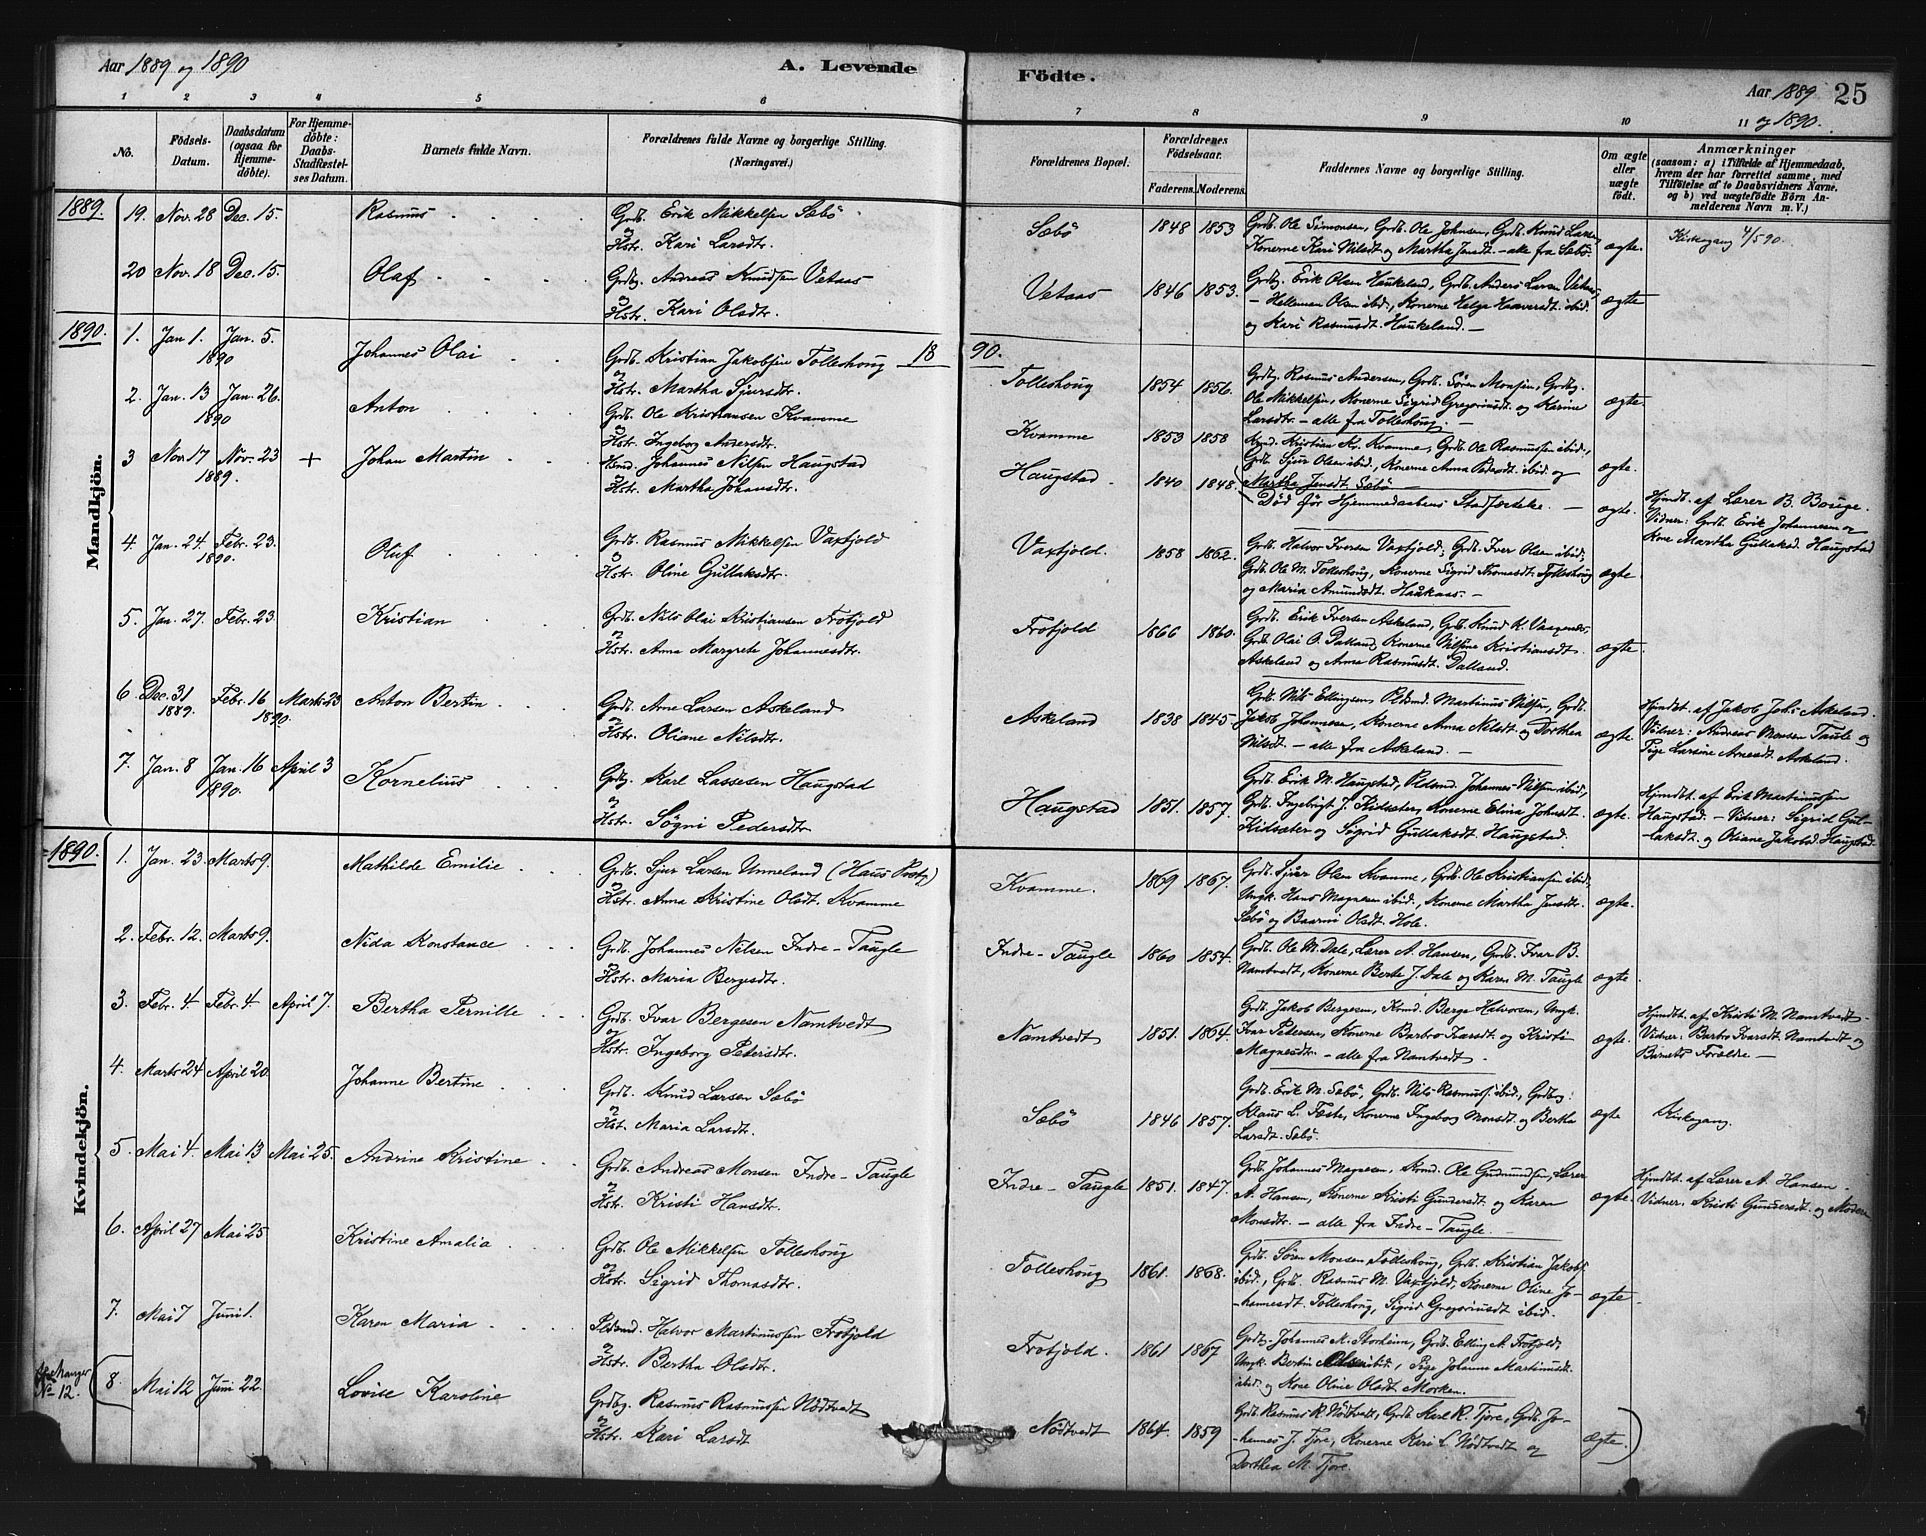 Aar 1889 og 1890
A. Levende
Födte.
Aar 1889 og 1890.
25
1 2 3 4 5 6 7 8 9 10 11
No.
Födsels-Datum.
Daabsdatum (ogsaa for Hjemme-döbte).
For Hjemme-döbte: Daabs-Stadfæstel-ses Datum.
Barnets fulde Navn.
Forældrenes fulde Navne og borgerlige Stilling. (Næringsvei.)
Forældrenes Bopæl.
Forældrenes Födselsaar.
Faderens. Moderens.
Faddernes Navne og borgerlige Stilling.
Om ægte eller uægte födt.
Anmærkninger
(saasom: a) i Tilfælde af Hjemmedaab,
hvem der har forrettet samme, med
Tilföielse af to Daabsvidners Navne,
og b) ved uægtefödte Börn An-
melderens Navn m. V.)
Mandkjön.
1889.
19. Nov. 28 Dec. 15. Rasmus
Grdb. Erik Mikkelsen Sæbö
og Hstr. Kari Larsdtr.
Sæbö 1848 1853
Grdb. Ole Simonsen, Grdb. Ole Johnsen, Grdb. Knud Larsen
Konerne Kari Nilsdt. og Martha Jensdt. – alle fra Sæbö.
ægte.
Kirkegang 4/5 90.
20 Nov. 18 Dec. 15. Olaf
Grdbg. Andreas Knudsen Vetaas
og Hstr. Kari Olsdtr.
Vetaas 1846 1853.
Grdbg. Erik Olsen Haukeland, Grdb. Anders Larsen Vetaas,
– Helleman Olsen ibid., Konerne Helga Haaversdt. ibid.
og Kari Rasmusdt. Haukeland. –
ægte
1890.
1890.
1. Jan 1. 1890 Jan. 5. Johannes Olai
Grdb. Kristian Jakobsen Tolleshoug
og Hstr. Martha Sjursdtr.
Tolleshoug 1854 1856.
Grdbg. Rasmus Andersen, Grdb. Sören Monsen, Grdbg.
Ole Mikkelsen, Konerne Sigrid Gregoriusdt. og Karine
Larsdtr. – alle fra Tolleshoug. –
ægte.
2. Jan. 13 1890 Jan. 26. Anton
Grdb. Ole Kristiansen Kvamme
og Hstr. Ingeborg Andersdtr.
Kvamme 1853 1858
Kmd. Kristian Kr. Kvamme, Grdb. Ole Rasmussen ibid.,
Grdb. Sjur Olsen ibid., Konerne Anna Pedersdt. ibid. og
Martha Jensdt. Sæbö –
ægte.
3 Nov. 17 1889. Nov. 23 + Johan Martin
Hsmd. Johannes Nilsen Haugstad
og Hstr. Martha Johansdtr.
Haugstad. 1840 1848.
Död för Hjemmedaabens Stadfæstelse. –
ægte.
Hjmdt. af Lærer B. Bauge.
Vidner: Grdb. Erik Johannesen og
Kone Martha Gullaksd. Haugstad
4. Jan. 24. 1890. Febr. 23. Oluf
Grdb. Rasmus Mikkelsen Vaxfjold
og Hstr. Oline Gullaksdtr.
Vaxfjold. 1858 1862.
Grdb. Halvor Iversen Vaxfjold, Grdb. Iver Olsen ibid.,
Grdb. Ole M. Tolleshoug, Konerne Sigrid Thomasdt. Tolleshoug
og Maria Amundsdt. Haukaas. –
ægte.
5. Jan. 27. Febr. 23. Kristian
Grdb. Nils Olai Kristiansen Frotjold
og Hstr. Anna Margrete Johannesdtr.
Frotjold 1866 1860.
Grdb. Erik Iversen Askeland, Grdb. Knud K. Vaagenes,
Grdb. Olai O. Dalland, Konerne Nilsine Kristiansdt.
Askeland og Anna Rasmusdt. Dalland.
ægte.
6. Dec. 31 1889. Febr. 16 1890. Marts 23 Anton Bertin
Grdb. Arne Larsen Askeland
og Hstr. Oliane Nilsdtr.
Askeland 1838 1845.
Grdb. Nils Ellingsen, Pldsmd. Martinus Nilsen, Grdb.
Jakob Johannesen, Konerne Anna Nilsdt. og Dorthea
Nilsdt. – alle fra Askeland. –
ægte.
Hjmdt. af Jakob Johs. Askeland.
Vidner: Andreas Monsen Taule og
Pige Larsine Arnesdt. Askeland.
7. Jan. 8 1890. Jan. 16 April 3 Kornelius
Grdbg. Karl Lassesen Haugstad
og Hstr. Søgni Pedersdtr.
Haugstad 1851. 1857.
Grdb. Erik M. Haugstad, Pldsmd. Johannes Nilsen ibid.,
Grdb. Ingebrigt J. Kidsæter, Konerne Elina Johnsdt.
Kidsæter og Sigrid Gullaksdt. Haugstad.
ægte.
Hjmdbt. af Erik Martinussen
Haugstad. – Vidner: Sigrid Gul-
laksdt. og Oliane Jakobsd. Haugstad.
Kvindekjön.
1890.
1. Jan. 23. Marts 9. Mathilde Emilie
Grdb. Sjur Larsen Unneland (Haus Prstg.)
og Hstr. Anna Kristine Olsdt. Kvamme
Kvamme. 1869 1867.
Grdb. Sjur Olsen Kvamme, Grdb. Ole Kristiansen ibid.,
Ungk. Hans Magnesen ibid., Konerne Martha Jensdtr.
Sæbö og Baarni Olsdt. Hole.
ægte.
2. Febr. 12. Marts 9. Nida Konstance
Grdb. Johannes Nilsen Indre-Taugle
og Hstr. Maria Bergesdtr.
Indre-Taugle 1860 1854.
Grdb. Ole M. Dale, Lærer A. Hansen, Grdb. Ivar B.
Namtvedt, Konerne Berte J. Dale og Karen M. Taugle
ægte.
3. Febr. 4. Febr. 4 April 7. Bertha Pernille
Grdb. Ivar Bergesen Namtvedt
og Hstr. Ingeborg Petersdtr.
Namtvedt 1851. 1864.
Grdb. Jakob Bergesen, Kmd. Berge Halvorsen, Ungk.
Ivar Petersen, Konerne Barbro Ivarsdt. og Kristi
Magnesdtr. – alle fra Namtvedt –
ægte.
Hjmdbt. af Kristi M. Namtvedt.
Vidner: Barbro Ivarsdt. Namtvedt og
Barnets Forældre –
4. Marts 24 April 20. Johanne Bertine
Grdb. Knud Larsen Sæbö
og Hst. Maria Larsdtr.
Sæbö 1846 1857.
Grdb. Erik M. Sæbö, Grdb. Nils Rasmuss. ibid., Grdbg:
Klaus L. Feste, Konerne Ingeborg Monsdt. og Bertha
Larsdt. Sæbö.
ægte
Kirkegang.
5. Mai 4. Mai 13 Mai 25. Andrine Kristine
Grdb. Andreas Monsen Indre-Taugle
og Hstr. Kristi Hansdtr.
Indre-Taugle 1851. 1847.
Grdb. Johannes Magnesen, Kmd. Ole Gudmundsen, Lærer
A. Hansen, Konerne Kristi Gundersdt. og Karen
Monsdtr. – alle fra Indre-Taugle. –
ægte.
Hjmdbt. af Lærer A. Hansen.
Vidner: Kristi Gundersdt. og Moderen
6. April 27 Mai 25 Kristine Amalia
Grdb. Ole Mikkelsen Tolleshoug
og Hstr. Sigrid Thomasdtr.
Tolleshoug 1861. 1868.
Grdb. Sören Monsen Tolleshoug, Grdb. Kristian Jakobs.
ibid., Grdb. Rasmus M. Vaxfjold, Konerne Oline Jo-
hannesdt. Tolleshoug, Sigrid Gregoriusdt ibid.
ægte.
7. Mai 7 Juni 1. Karen Maria
Pldsmd. Halvor Martinussen Frotjold
og Hstr. Bertha Olsdtr.
Frotjold. 1861 1867
Grdb. Johannes M. Storheim, Grdb. Elling N. Frotjold,
Ungk. Bertin Olsen ibid., Pige Johanne Martinusdt.
ibid. og Kone Oline Olsdt. Morken.
ægte.
Manger No 12.
8. Mai 12 Juni 22. Lovise Karoline
Grdbg. Rasmus Rasmussen Nödtvedt
og Hstr. Kari Larsdt
Nödtvedt 1864. 1859
Grdb. Rasmus R. Nödtvedt, Grdb. Karl R. Fjore, Grdb. Jo-
hannes J. Fjore, Konerne Kari L. Nödtvedt og
Dorthea M. Fjore.
ægte.